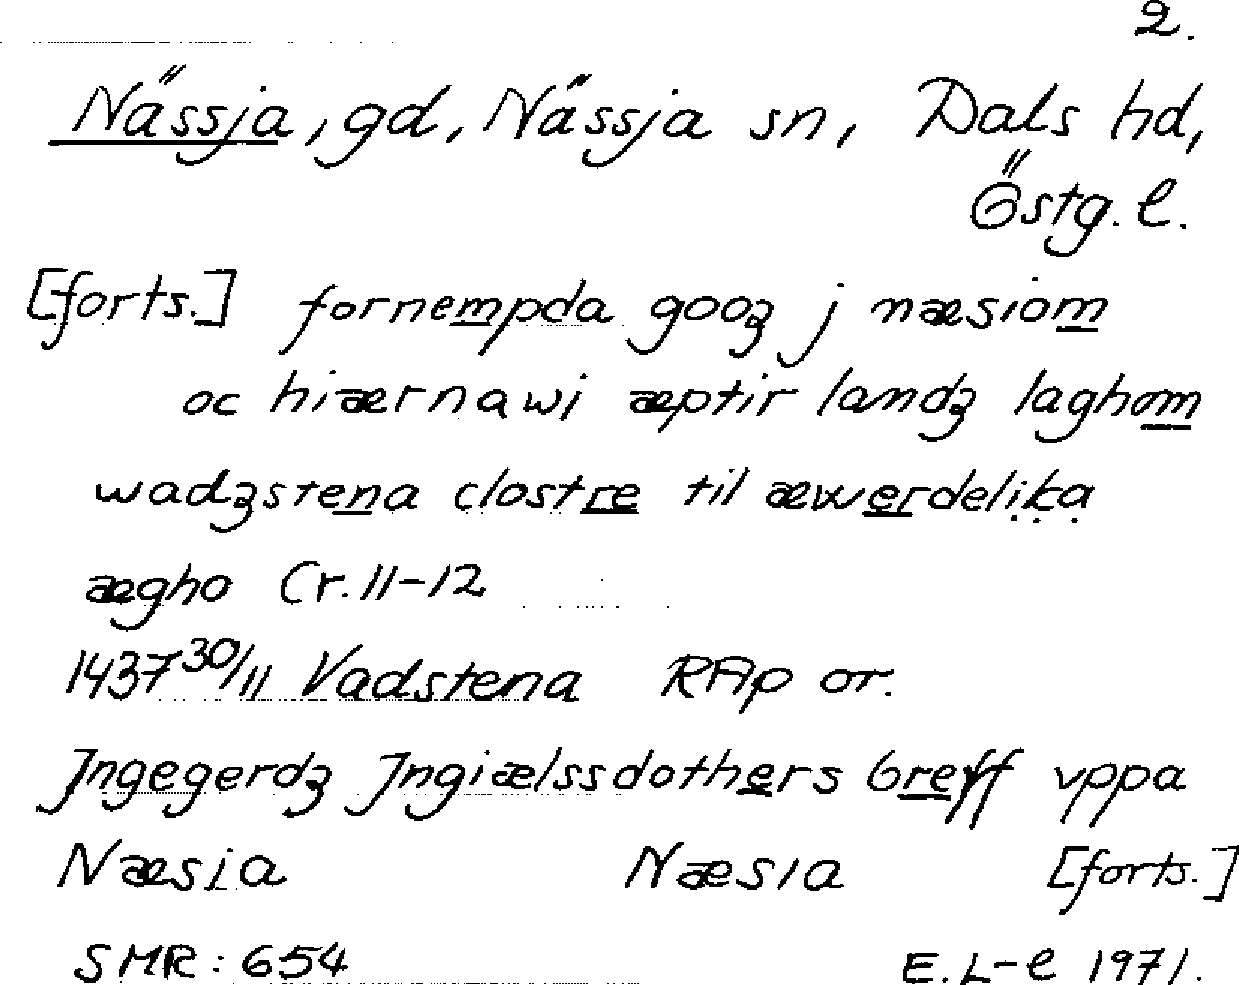 2.
Nässja, gd, Nässja sn, Dals hd,
Östg. l.
[forts.] fornempda gooʒ j næsiom
oc hiærnawi æptir landʒ laghom
wadʒstena clostre til æwerdelika
ægho Cr. 11-12
1437 30/11 Vadstena RAp or.
Jngegerdʒ Jngiælssdothers breff vppa
Næsia Næsia [forts.]
SMR: 654 E. L-e 1971.